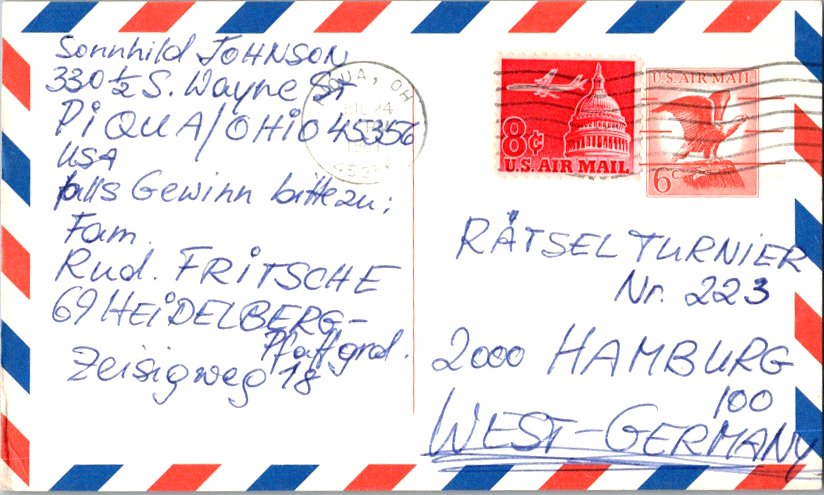 Sonnhild JOHNSON
330 1/2 S. Wayne St
PiQUA/OHiO 45356
USA
falls Gewinn bitte zu:
Fam.
Rud. FRiTSCHE
69 HEiDELBERG-
Pfaffgrd.
Zeisigweg 18
QUA, OH
24
8¢
U.S. AIR MAIL
U.S. AIR MAIL
6c
RÄTSELTURNIER
Nr. 223
2000 HAMBURG
100
WEST-GERMANY